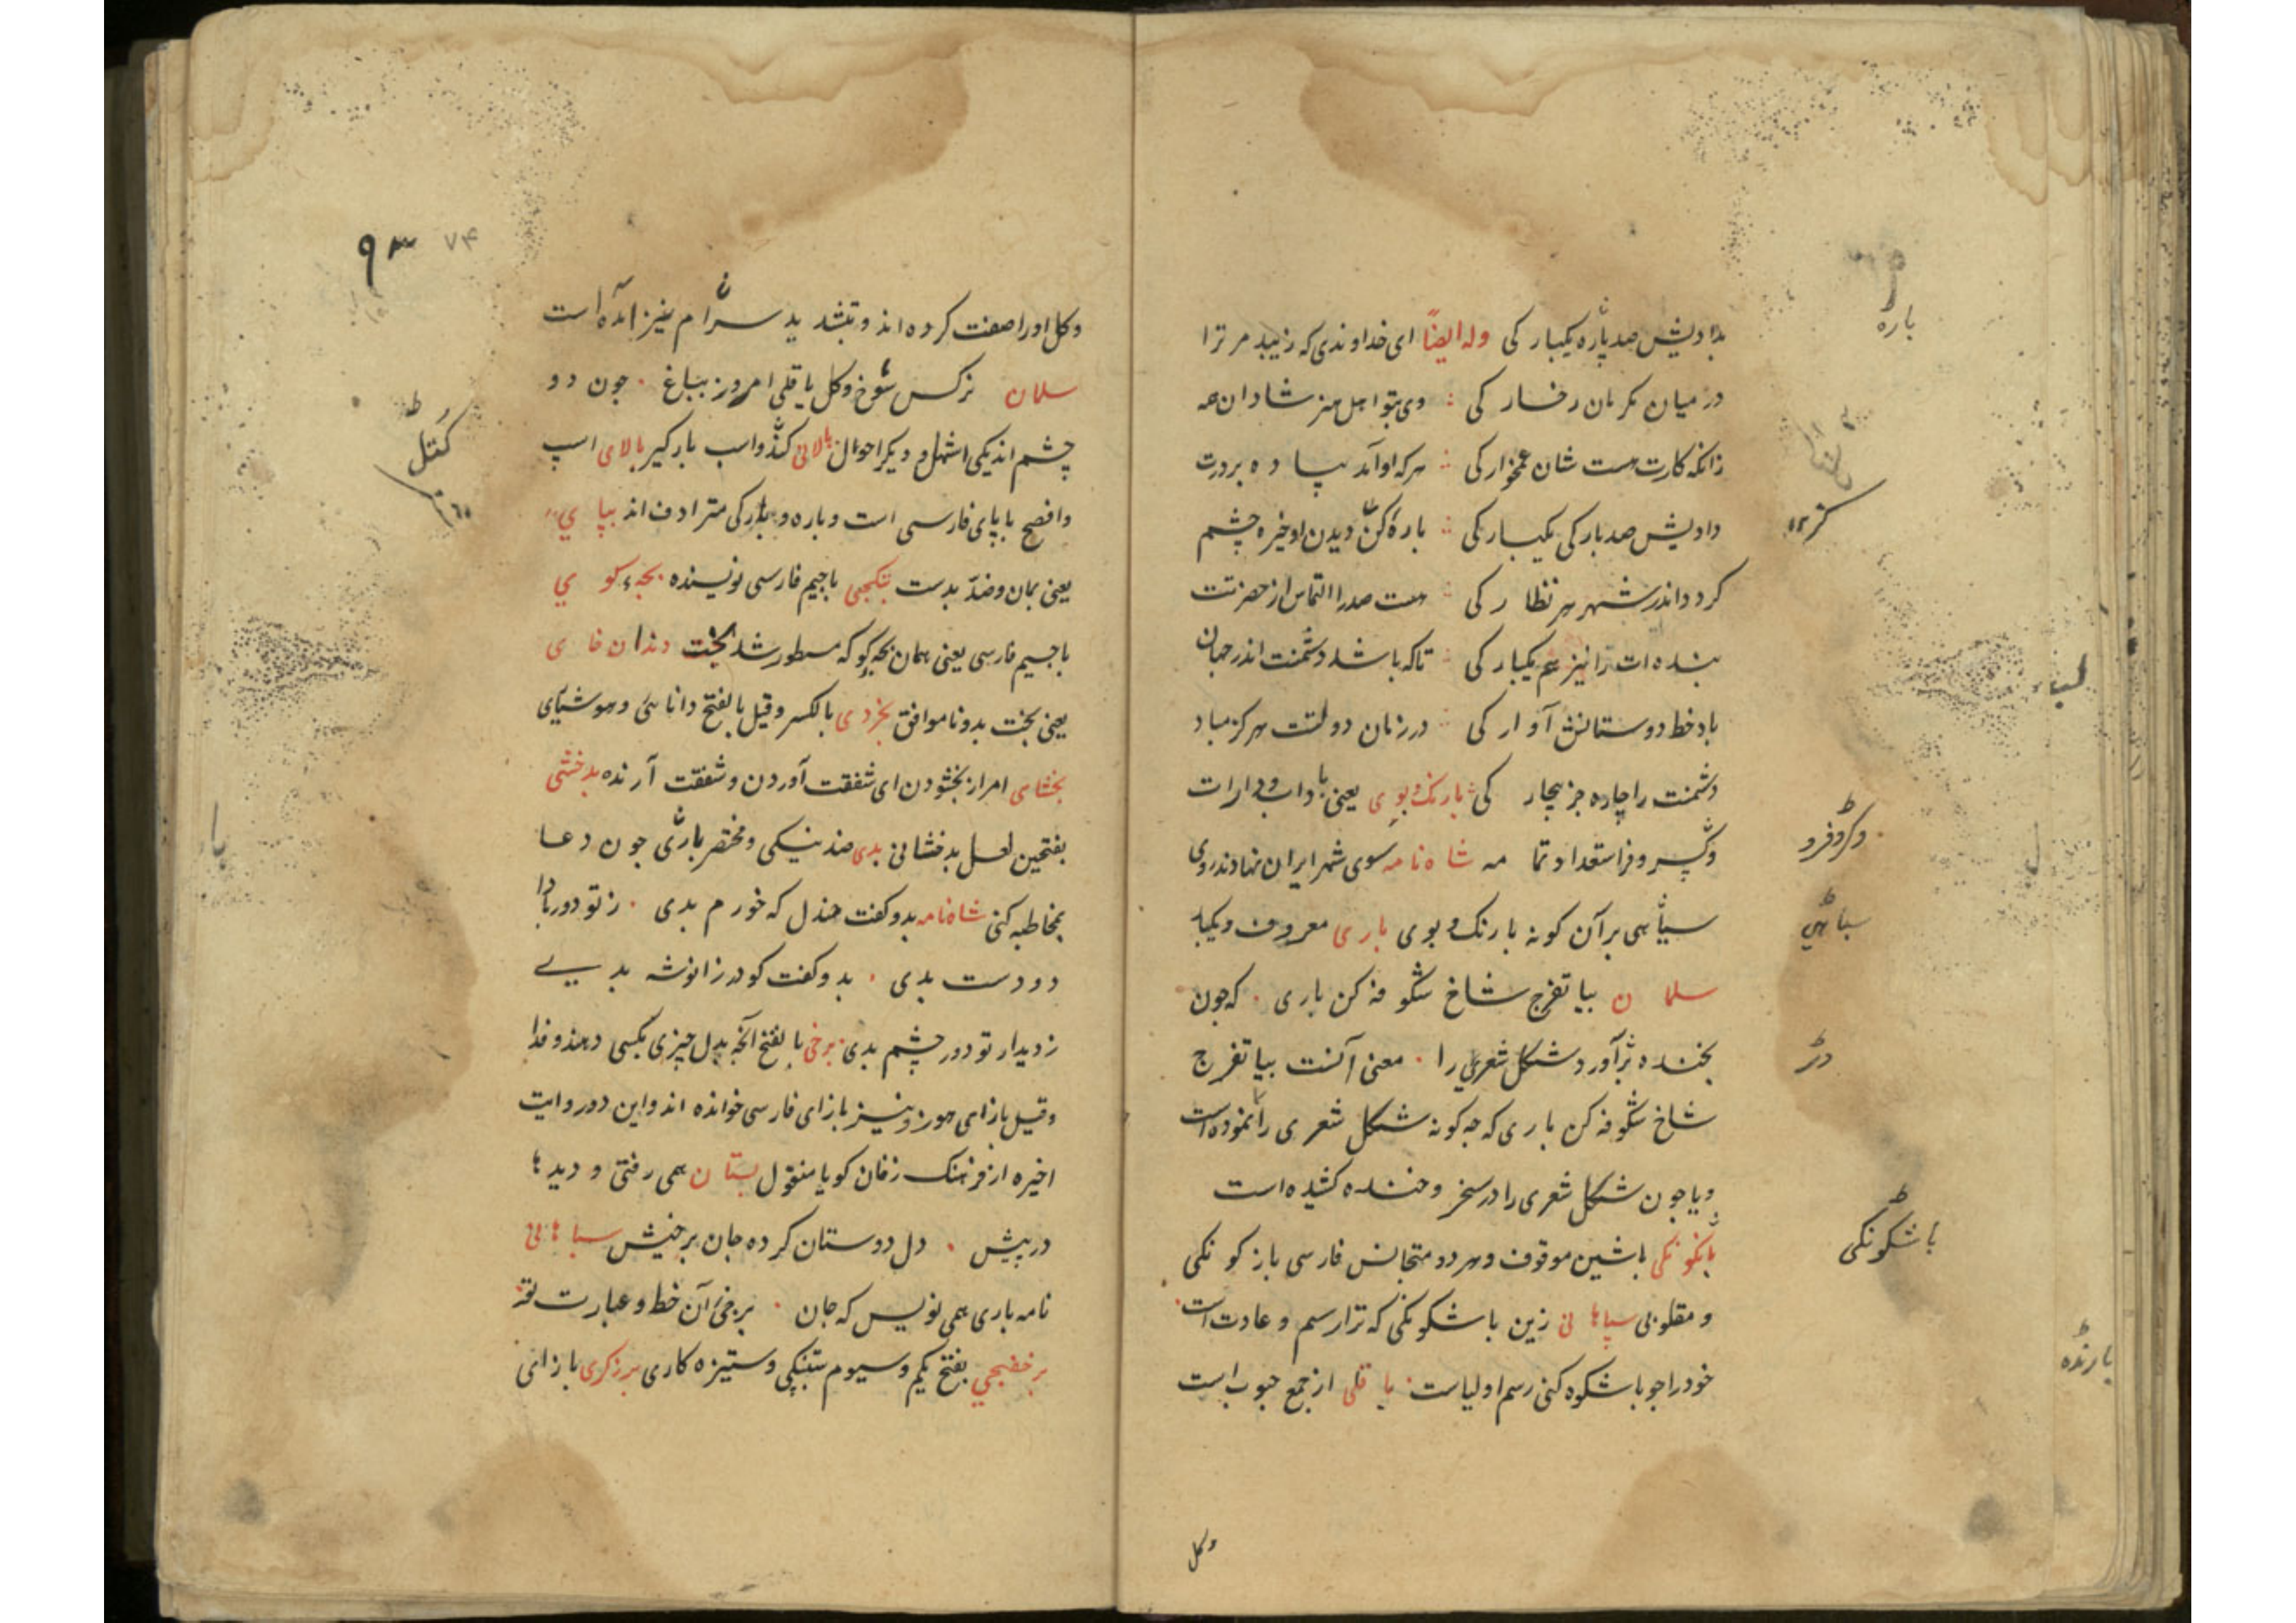 بدادیش صد پاره یکبار کی وله ایضاً ای خداوندی که زیبد مر ترا
در میان مکرمان رخسار کی وی بتو اهل هنر شادان همه
زانکه کارت هست شان غمخوار کی هر که او آمد پیاده بر درت
دادیش صد بار کی یکبار کی بارهٔ کن دیدن او خیره چشم
کردد اندر شهر هر نظار کی هست صدرا التماس از حضرتت
بنده ات را نیز هم یکبار کی تا که باشد دشمنت اندر جهان
باد خط دوستانش آوار کی در زمان دولتت هرگز مباد
دشمنت را چاره جز بیچار کی بارنک و بوی یعنی با داب و دارات
وکر و فر استعداد تمامه شاه نامه سوی شهر ایران نهادند روی
سپاهی بر آن کونه با رنک و بوی باری معروف و یکبار
سلمان بیا تفرج شاخ شکوفه کن باری که چون
بخنده بر آورد شکل شعری را معنی آنست بیا تفرج
شاخ شکوفه کن باری که چه کونه شکل شعری را نموده است
و یا چون شکل شعری را در سخر و خنده کشیده است
باشکونکی باشین موقوف و هر دو متجانس فارسی بازکونکی
و مقلوبی سپاهانی زین باشکونکی که ترا رسم و عادت است
خود را چو باشکوه کنی رسم اولیاست باقلی از جمع حبوب است
وکل
باره
وکروفرو
سپاهی
در
باشکونکی
بارنده
وکل او را صفت کرده اند و بتشدید سرام نیز آمده است
سلمان نرکس شوخ و کل باقلی امروز بباغ چون دو
چشم اند یکی اشهل و دیکر احول بالانی کند و اسپ بارگیر بالای اسپ
وافصح با پای فارسی است و باره و بارکی مترادف اند بپای
یعنی بمان و ضدّ بدست بتکچی با جیم فارسی نویسنده بچه کوی
باجیم فارسی یعنی همان بچه کو که مسطور شد بخت دندان خای
یعنی بخت بد و ناموافق بخردی بالکسر و قیل بالفتح دانائی و هوشیای
بخشای امر از بخشودن ای شفقت آوردن و شفقت آرنده بدخشی
بفتحین لعل بدخشانی بدی ضد نیکی و مختصر باری چون دعا
بمخاطبه کنی شاه نامه بدو کفت جندل که خورم بدی ز تو دور بادا
دو دست بدی بدو کفت کودرز انوشه بدی
ز دیدار تو دور چشم بدی برخی بالفتح آنچه بدل چیزی بکسی دهند و فدا
وقیل بازای هوز و نیز بازای فارسی خوانده اند و این دو روایت
اخیره از فرهنک زفان کویا منقول بستان همی رفتی و دیدها
در پیش دل دوستان کرده جان برخیش سپاهانی
نامه باری همی نویس که جان برخی آن خط و عبارت تو
برخفجی بفتح یکم و سیوم ستنبکی و ستیزه کاری برزکری بازای
۹۳
۷۴
کتل